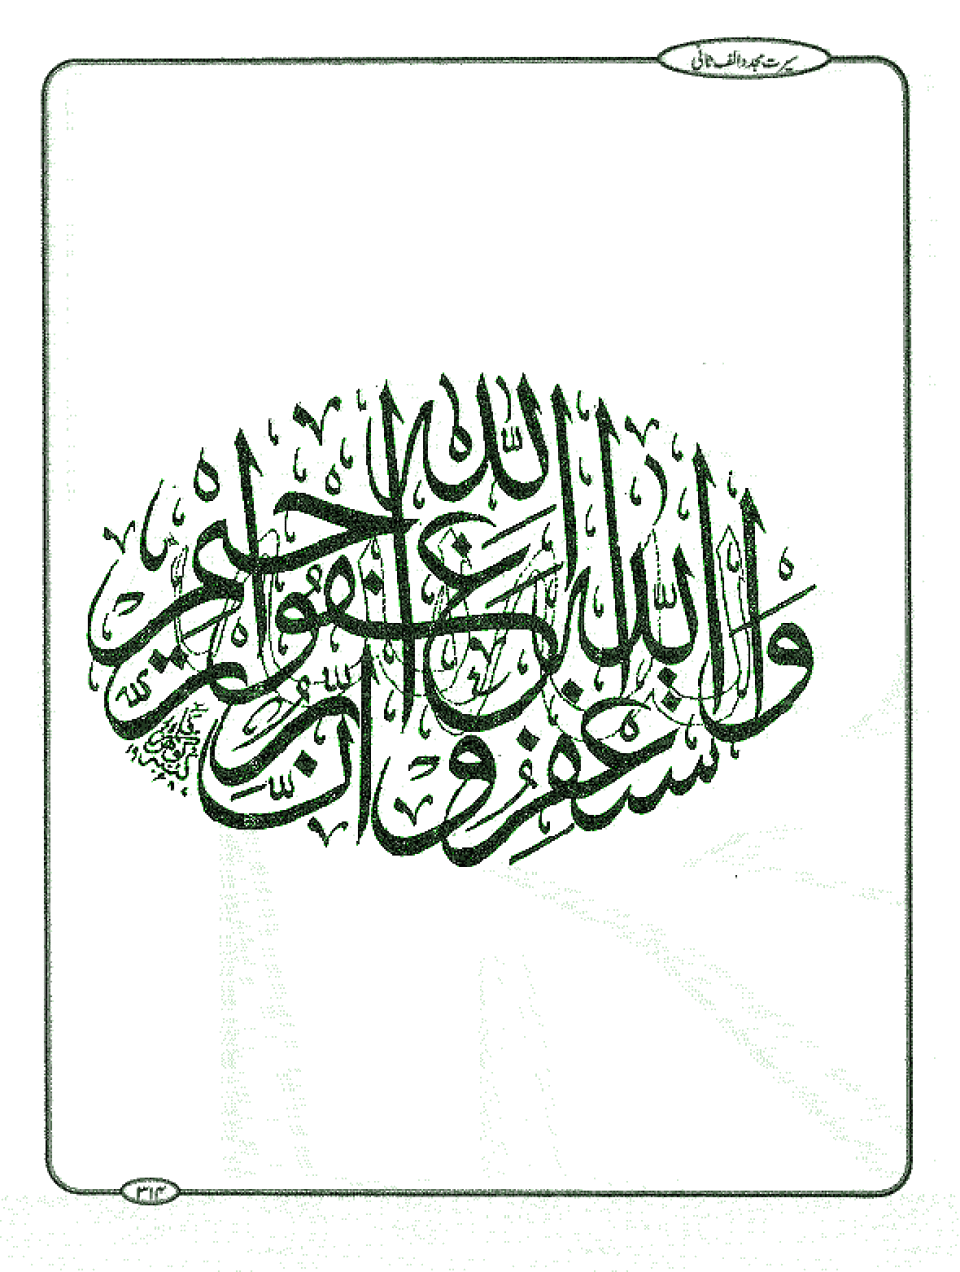 سیرت مجدد الف ثانی
وَاسْتَغْفِرُوا اللَّهَ إِنَّ اللَّهَ غَفُورٌ رَّحِيمٌ
۳۱۴